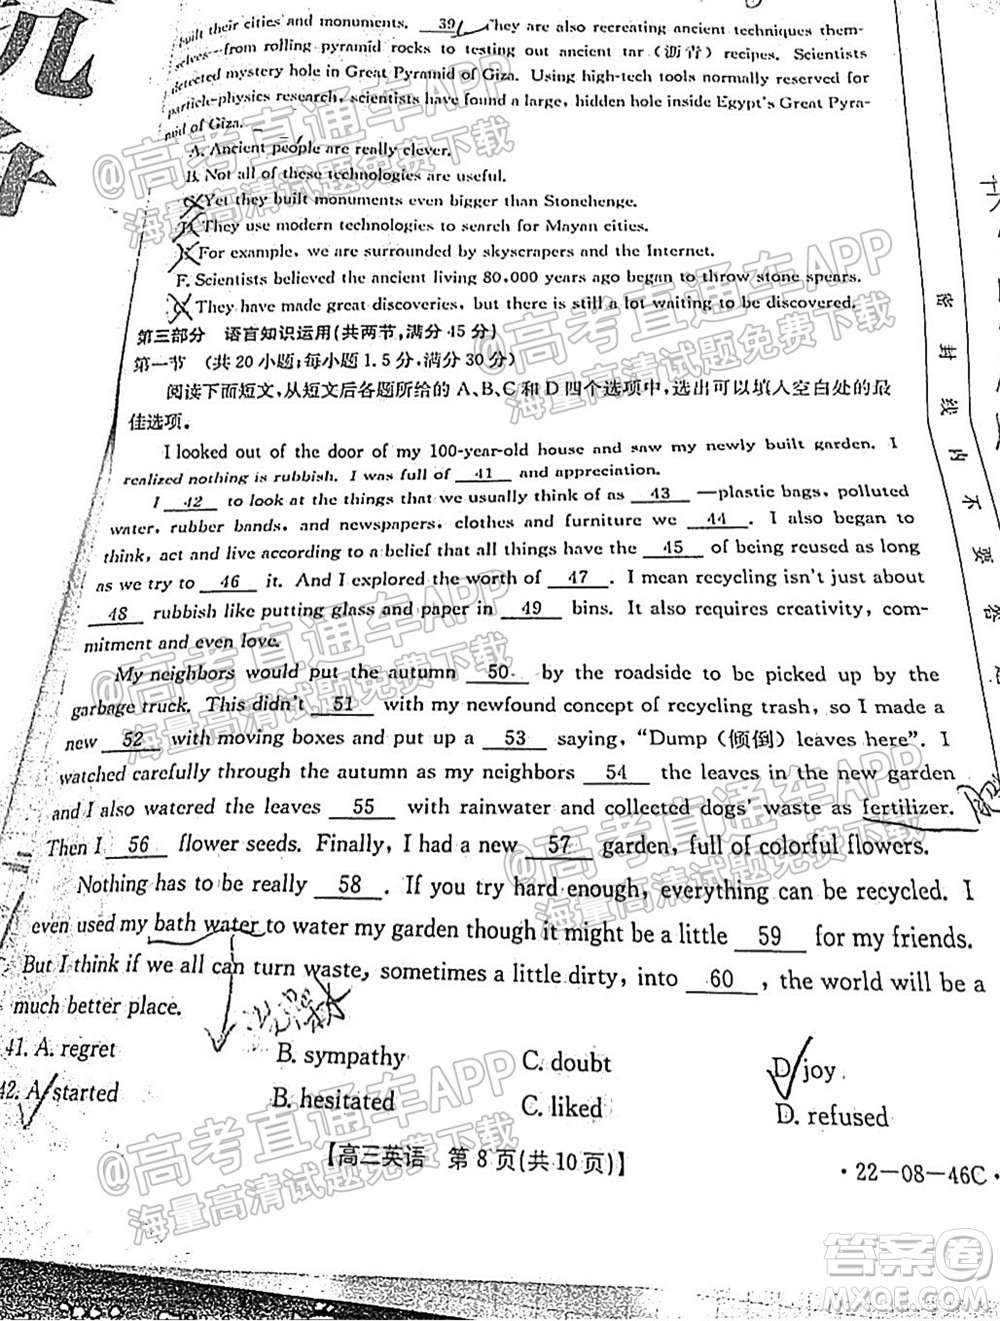 built their cities and monuments. 39 They are also recreating ancient techniques them-
selves—from rolling pyramid rocks to testing out ancient tar（沥青）recipes. Scientists
detected mystery hole in Great Pyramid of Giza. Using high-tech tools normally reserved for
particle-physics research, scientists have found a large, hidden hole inside Egypt's Great Pyra-
mid of Giza.
A. Ancient people are really clever.
B. Not all of these technologies are useful.
C. Yet they built monuments even bigger than Stonehenge.
D. They use modern technologies to search for Mayan cities.
E. For example, we are surrounded by skyscrapers and the Internet.
F. Scientists believed the ancient living 80,000 years ago began to throw stone spears.
G. They have made great discoveries, but there is still a lot waiting to be discovered.
第三部分 语言知识运用(共两节,满分45分)
第一节 (共20小题;每小题1.5分,满分30分)
阅读下面短文,从短文后各题所给的A、B、C和D四个选项中,选出可以填入空白处的最
佳选项。
I looked out of the door of my 100-year-old house and saw my newly built garden. I
realized nothing is rubbish. I was full of 41 and appreciation.
I 42 to look at the things that we usually think of as 43 —plastic bags, polluted
water, rubber bands, and newspapers, clothes and furniture we 44 . I also began to
think, act and live according to a belief that all things have the 45 of being reused as long
as we try to 46 it. And I explored the worth of 47 . I mean recycling isn't just about
48 rubbish like putting glass and paper in 49 bins. It also requires creativity, com-
mitment and even love.
My neighbors would put the autumn 50 by the roadside to be picked up by the
garbage truck. This didn't 51 with my newfound concept of recycling trash, so I made a
new 52 with moving boxes and put up a 53 saying, “Dump（倾倒）leaves here”. I
watched carefully through the autumn as my neighbors 54 the leaves in the new garden
and I also watered the leaves 55 with rainwater and collected dogs' waste as fertilizer.
Then I 56 flower seeds. Finally, I had a new 57 garden, full of colorful flowers.
Nothing has to be really 58 . If you try hard enough, everything can be recycled. I
even used my bath water to water my garden though it might be a little 59 for my friends.
But I think if we all can turn waste, sometimes a little dirty, into 60 , the world will be a
much better place.
41. A. regret B. sympathy C. doubt D. joy
42. A. started B. hesitated C. liked D. refused
【高三英语 第8页(共10页)】
·22-08-46C·
密封线内不要答
@高考直通车APP
海量高清试题免费下载
@高考直通车APP
海量高清试题免费下载
@高考直通车APP
海量高清试题免费下载
@高考直通车APP
海量高清试题免费下载
@高考直通车APP
海量高清试题免费下载
@高考直通车APP
海量高清试题免费下载
答案卷
MXQE.COM